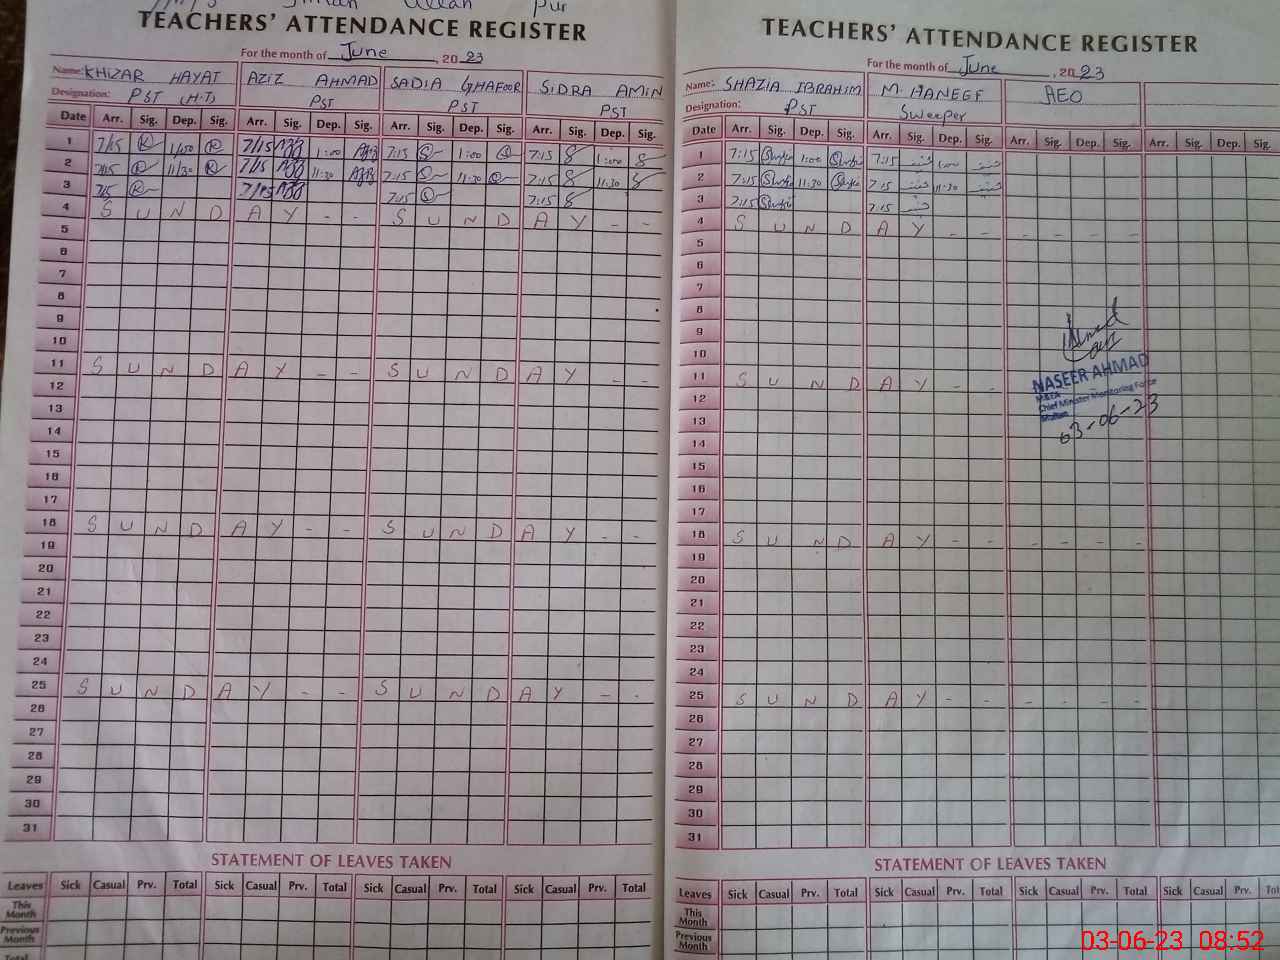 TEACHERS' ATTENDANCE REGISTER
For the month of June, 2023
Name: KHIZAR HAYAT AZIZ AHMAD SADIA GHAFOOR SIDRA AMIN
Designation: PST (H.T) PST PST PST
Date Arr. Sig. Dep. Sig. Arr. Sig. Dep. Sig. Arr. Sig. Dep. Sig. Arr. Sig. Dep. Sig.
1 7/15 7/15 1:00 7:15 1:00 7:15 1:00
2 7/15 11/30 7/15 11:30 7:15 11:30 7:15 11:30
3 7/15 7:15 7:15
4 S U N D A Y - - S U N D A Y - -
5
6
7
8
9
10
11 S U N D A Y - - S U N D A Y - -
12
13
14
15
16
17
18 S U N D A Y - - S U N D A Y - -
19
20
21
22
23
24
25 S U N D A Y - - S U N D A Y - -
26
27
28
29
30
31
STATEMENT OF LEAVES TAKEN
Leaves Sick Casual Prv. Total Sick Casual Prv. Total Sick Casual Prv. Total Sick Casual Prv. Total
This Month
Previous Month
Total
TEACHERS' ATTENDANCE REGISTER
For the month of June, 2023
Name: SHAZIA IBRAHIM M. HANEEF AEO
Designation: PST Sweeper
Date Arr. Sig. Dep. Sig. Arr. Sig. Dep. Sig. Arr. Sig. Dep. Sig. Arr. Sig. Dep. Sig.
1 7:15 1:00 7:15 1:00
2 7:15 11:30 7:15 11:30
3 7:15 7:15
4 S U N D A Y - - - - - -
5
6
7
8
9
10
11 S U N D A Y - -
12
13
14
15
16
17
18 S U N D A Y - - - - - -
19
20
21
22
23
24
25 S U N D A Y - - - - - -
26
27
28
29
30
31
NASEER AHMAD
MEA
Chief Minister Monitoring Force
Multan
03-06-23
STATEMENT OF LEAVES TAKEN
Leaves Sick Casual Prv. Total Sick Casual Prv. Total Sick Casual Prv. Total Sick Casual Prv.
This Month
Previous Month
03-06-23 08:52